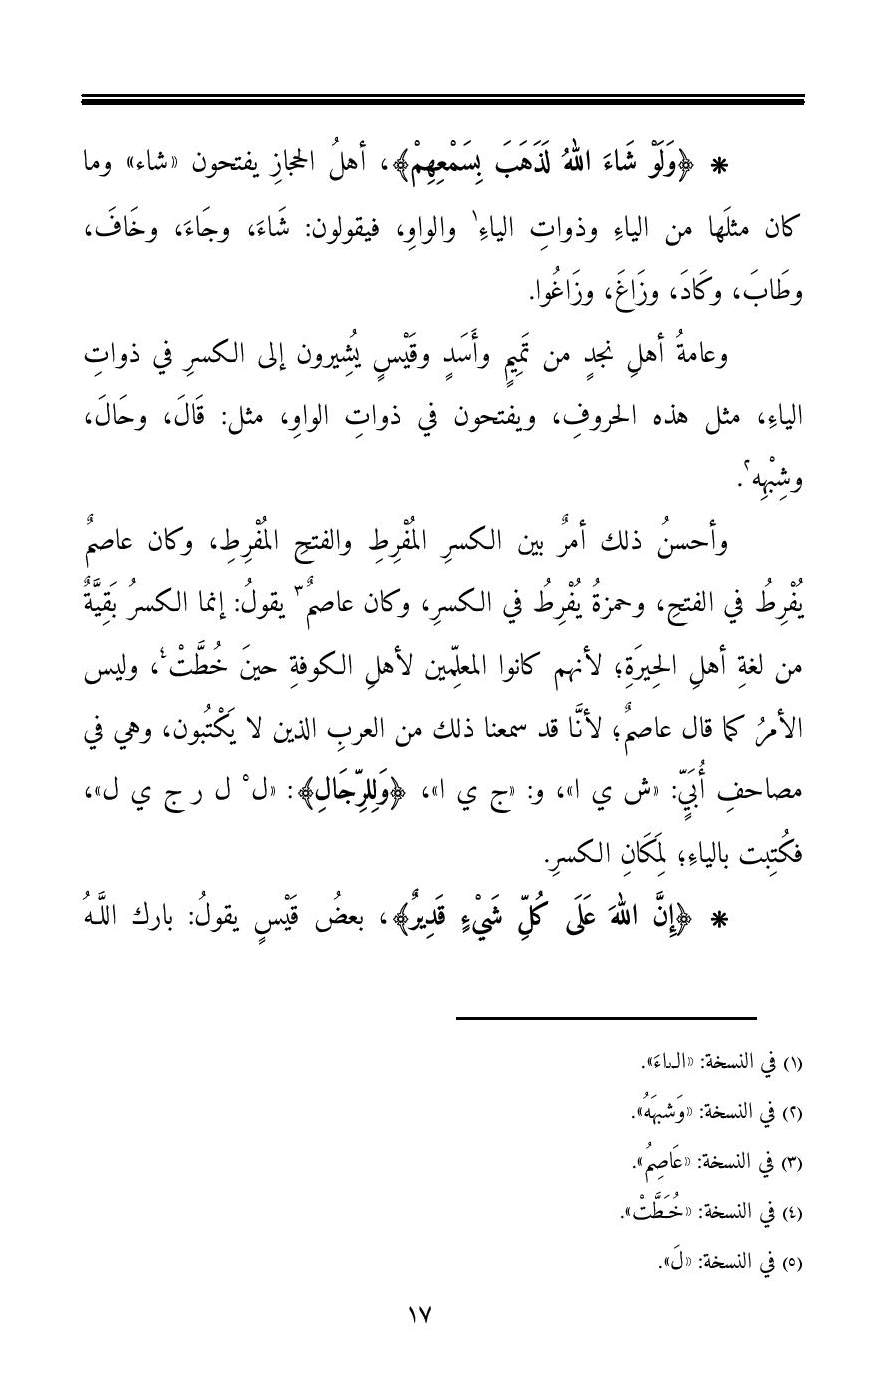 * ﴿وَلَوْ شَاءَ اللهُ لَذَهَبَ بِسَمْعِهِمْ﴾، أهلُ الحجازِ يفتحون «شاء» وما
كان مثلَها من الياءِ وذواتِ الياءِ١ والواوِ، فيقولون: شَاءَ، وجَاءَ، وخَافَ،
وطَابَ، وكَادَ، وزَاغَ، وزَاغُوا.
وعامةُ أهلِ نجدٍ من تَمِيمٍ وأَسَدٍ وقَيْسٍ يُشِيرون إلى الكسرِ في ذواتِ
الياءِ، مثل هذه الحروفِ، ويفتحون في ذواتِ الواوِ، مثل: قَالَ، وحَالَ،
وشِبْهِه٢.
وأحسنُ ذلك أمرٌ بين الكسرِ المُفْرِطِ والفتحِ المُفْرِطِ، وكان عاصمٌ
يُفْرِطُ في الفتحِ، وحمزةُ يُفْرِطُ في الكسرِ، وكان عاصمٌ٣ يقولُ: إنما الكسرُ بَقِيَّةٌ
من لغةِ أهلِ الحِيرَةِ؛ لأنهم كانوا المعلِّمين لأهلِ الكوفةِ حينَ خُطَّتْ٤، وليس
الأمرُ كما قال عاصمٌ؛ لأنَّا قد سمعنا ذلك من العربِ الذين لا يَكْتُبون، وهي في
مصاحفِ أُبَيٍّ: «ش ي ا»، و: «ج ي ا»، ﴿وَلِلرِّجَالِ﴾: «ل٥ ل ر ج ي ل»،
فكُتِبت بالياءِ؛ لِمَكَانِ الكسرِ.
* ﴿إِنَّ اللهَ عَلَى كُلِّ شَيْءٍ قَدِيرٌ﴾، بعضُ قَيْسٍ يقولُ: بارك اللَّهُ
(١) في النسخة: «الىاءَ».
(٢) في النسخة: «وَشبهَهُ».
(٣) في النسخة: «عَاصِمُ».
(٤) في النسخة: «خُطَّتْ».
(٥) في النسخة: «لَ».
١٧